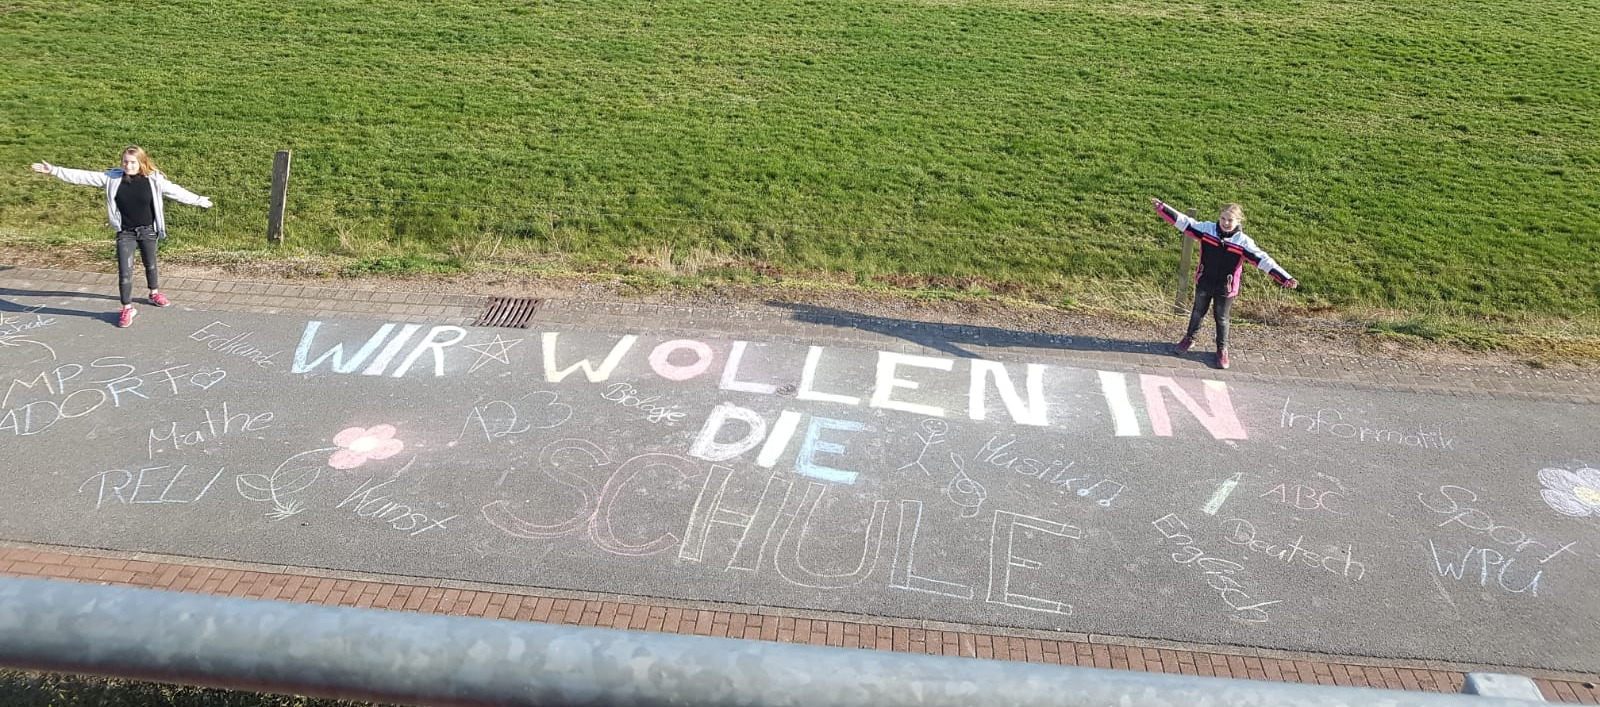 WIR WOLLEN IN
DIE
SCHULE
Schule
MPS
ADORF
Erdkunde
Mathe
RELI
Kunst
123
Biologie
Musik
Informatik
ABC
Deutsch
Englisch
Sport
WPU